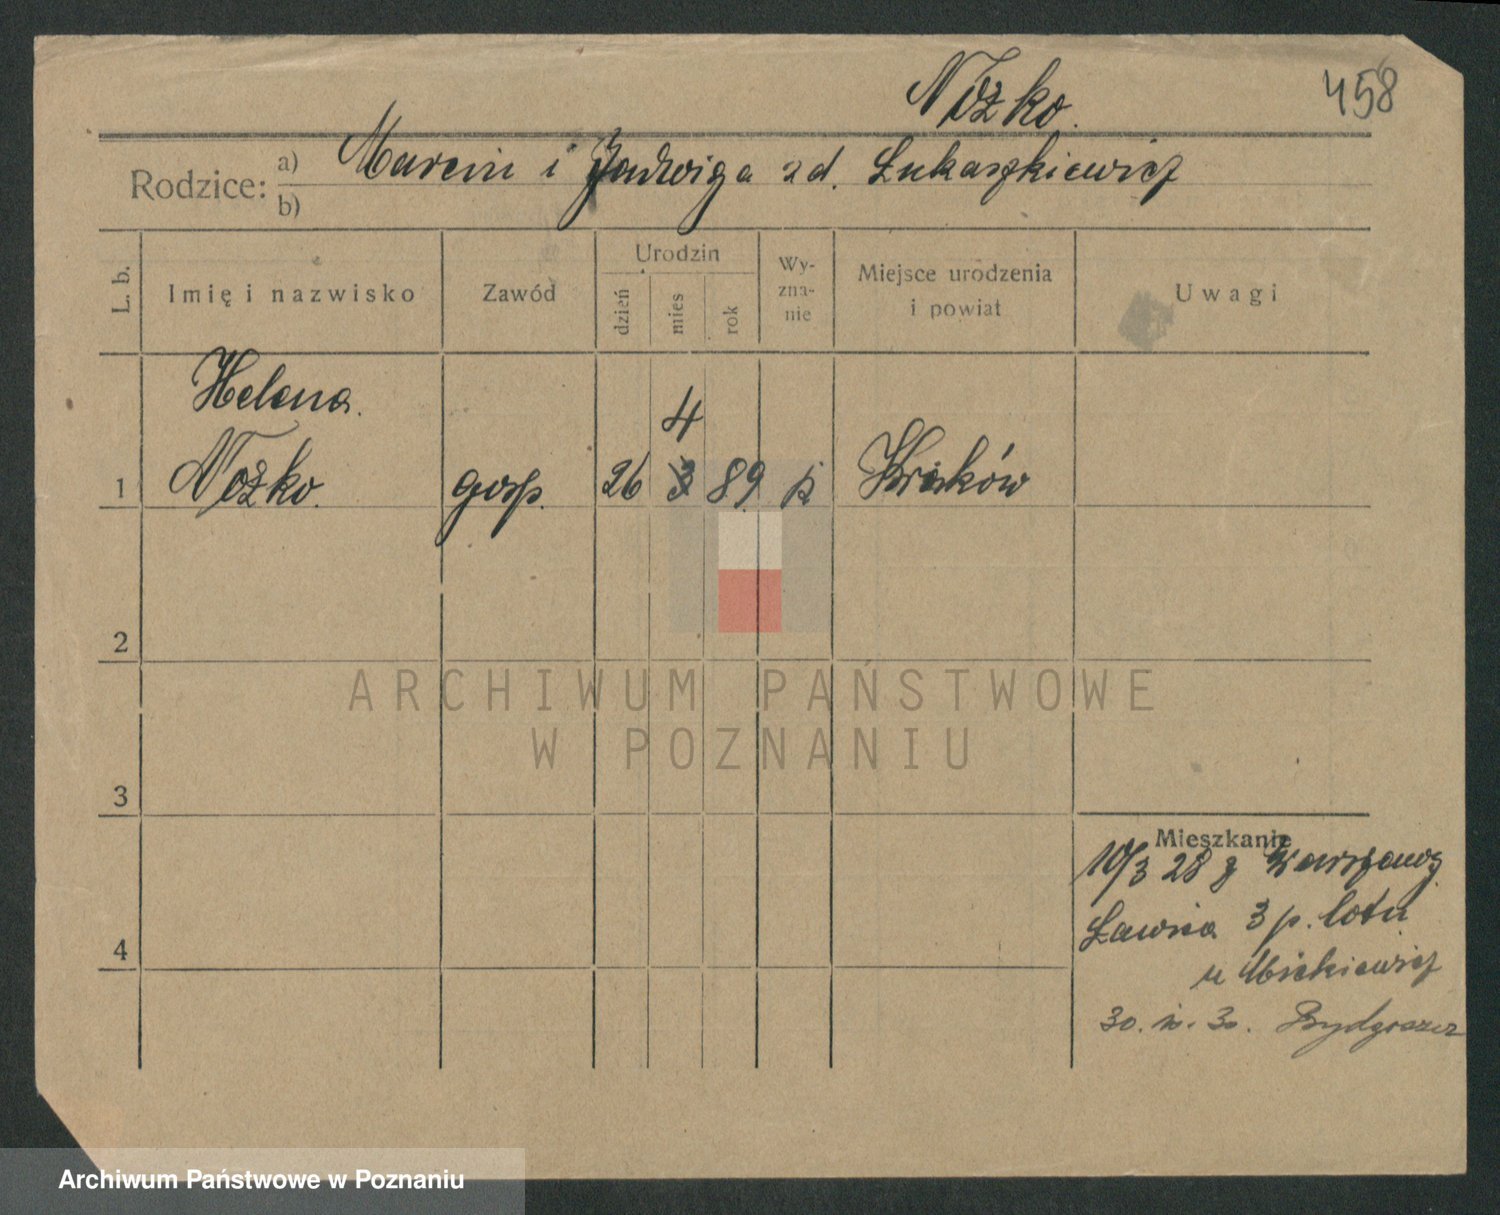 Nożko.
458
Rodzice: a) Marcin i Jadwiga zd. Łukaszkiewicz
b)
L. b.
Imię i nazwisko
Zawód
Urodzin
dzień
mies
rok
Wy-
zna-
nie
Miejsce urodzenia
i powiat
Uwagi
Helena
4
1 Nożko. gosp. 26 3 89 k Kraków
2
3
4
Mieszkanie
10/3 28 z Warszawy
Ławica 3 p. lotn
u Mickiewicz
30. 30. Bydgoszcz
ARCHIWUM PAŃSTWOWE
W POZNANIU
Archiwum Państwowe w Poznaniu